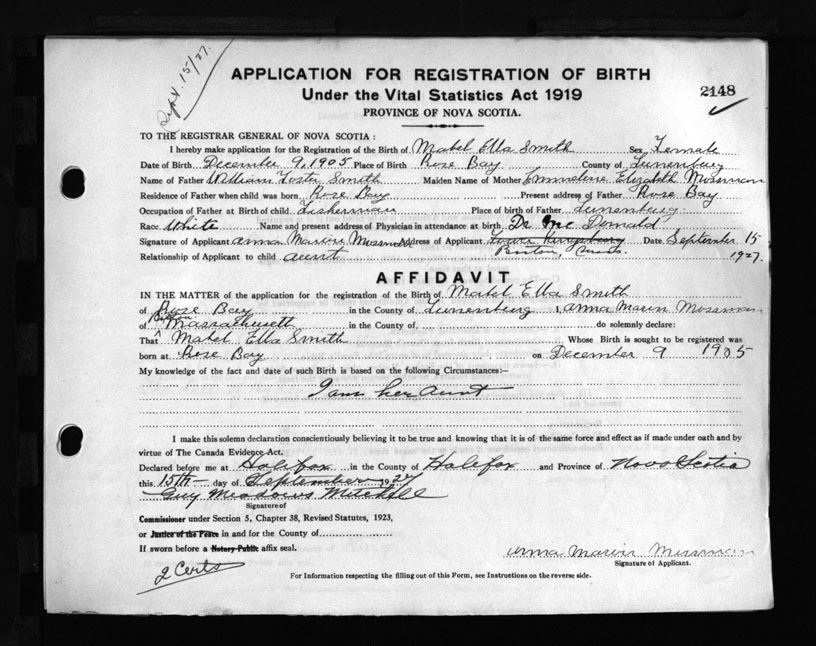 Sept. 15/27.
APPLICATION FOR REGISTRATION OF BIRTH
Under the Vital Statistics Act 1919
2148
PROVINCE OF NOVA SCOTIA.
TO THE REGISTRAR GENERAL OF NOVA SCOTIA :
I hereby make application for the Registration of the Birth of Mabel Ella Smith Sex Female
Date of Birth December 9, 1905 Place of Birth Rose Bay County of Lunenburg
Name of Father William Foster Smith Maiden Name of Mother Emmelene Elizabeth Mossman
Residence of Father when child was born Rose Bay Present address of Father Rose Bay
Occupation of Father at Birth of child Fisherman Place of birth of Father Lunenburg
Race White Name and present address of Physician in attendance at birth Dr Mc Donald
Signature of Applicant Anna Marion Mossman Address of Applicant Date September 15
Relationship of Applicant to child aunt Boston, Mass. 1927.
AFFIDAVIT
IN THE MATTER of the application for the registration of the Birth of Mabel Ella Smith
of Rose Bay in the County of Lunenburg I, Anna Marion Mossman
Boston
of Massachusett in the County of do solemnly declare:
That Mabel Ella Smith Whose Birth is sought to be registered was
born at Rose Bay on December 9 1905
My knowledge of the fact and date of such Birth is based on the following Circumstances:-
I am her Aunt
I make this solemn declaration conscientiously believing it to be true and knowing that it is of the same force and effect as if made under oath and by
virtue of The Canada Evidence Act.
Declared before me at Halifax in the County of Halifax and Province of Nova Scotia
this 15th day of September 1927
Guy Meadows Mitchell
Signature of
Commissioner under Section 5, Chapter 38, Revised Statutes, 1923,
or Justice of the Peace in and for the County of
If sworn before a Notary Public affix seal.
Anna Marion Mossman
Signature of Applicant.
2 Certs
For Information respecting the filling out of this Form, see Instructions on the reverse side.